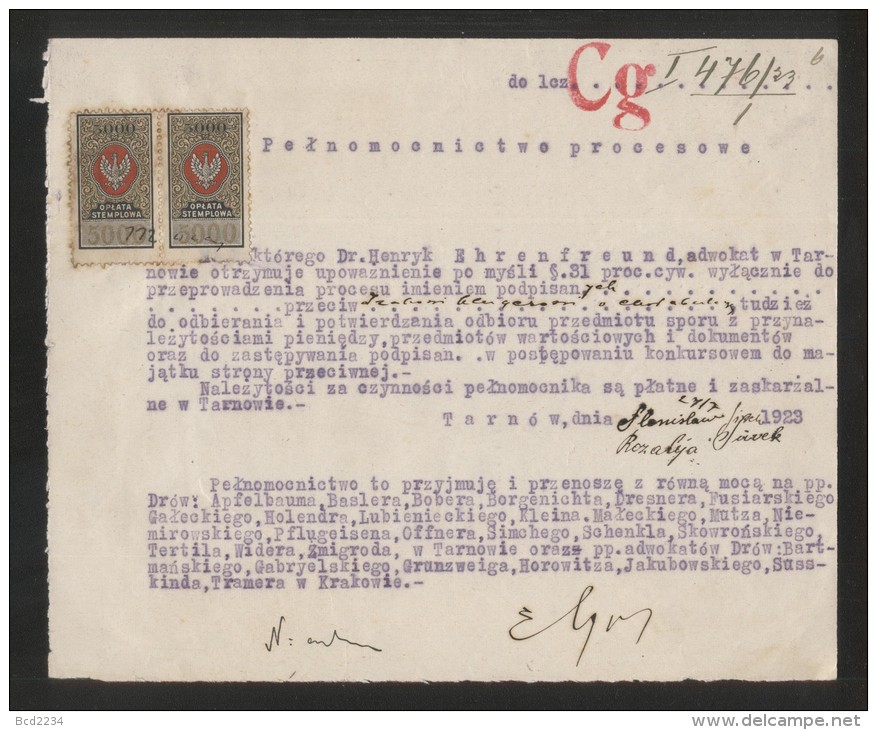 do lcz. Cg I 476/23 6
1
Pełnomocnictwo procesowe
5000 5000
OPŁATA STEMPLOWA OPŁATA STEMPLOWA
5000 5000
którego Dr.Henryk Ehrenfreund,adwokat w Tar-
nowie otrzymuje upoważnienie po myśli §.31 proc.cyw. wyłącznie do
przeprowadzenia procesu imieniem podpisanych. . . . . . . . . . . .
. . . . . . .przeciw tudzież
do odbierania i potwierdzania odbioru przedmiotu sporu z przyna-
leżytościami pieniędzy,przedmiotów wartościowych i dokumentów
oraz do zastępywania podpisan. .w postępowaniu konkursowem do ma-
jątku strony przeciwnej.-
Należytości za czynności pełnomocnika są płatne i zaskarżal-
ne w Tarnowie.-
Tarnów,dnia Stanisław 1923
Rozalija
Pełnomocnictwo to przyjmuję i przenoszę z równą mocą na pp.
Drów: Apfelbauma,Baslera,Bobera,Borgenichta,Dresnera,Fusiarskiego
Gałeckiego,Holendra,Lubienieckiego,Kleina.Małeckiego,Mutza,Nie-
mirowskiego,Pflugeisena,Offnera,Simchego,Schenkla,Skowrońskiego,
Tertila,Widera,Żmigroda, w Tarnowie oraz pp.adwokatów Drów:Bart-
mańskiego,Gabryelskiego,Grunzweiga,Horowitza,Jakubowskiego,Suss-
kinda,Tramera w Krakowie.-
Bcd2234
www.delcampe.net